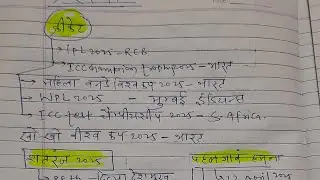 क्रिकेट
→ IPL 2025 - RCB
→ ICC champion trophy 2025 - भारत
→ महिला वनडे विश्व कप 2025 - भारत
→ WPL 2025 - मुम्बई इंडियन्स
→ ICC test चैम्पियनशीप 2025 - S. Africa
खो खो विश्व कप 2025 - भारत
शतरंज 2025
पहलगांव हमला
2025